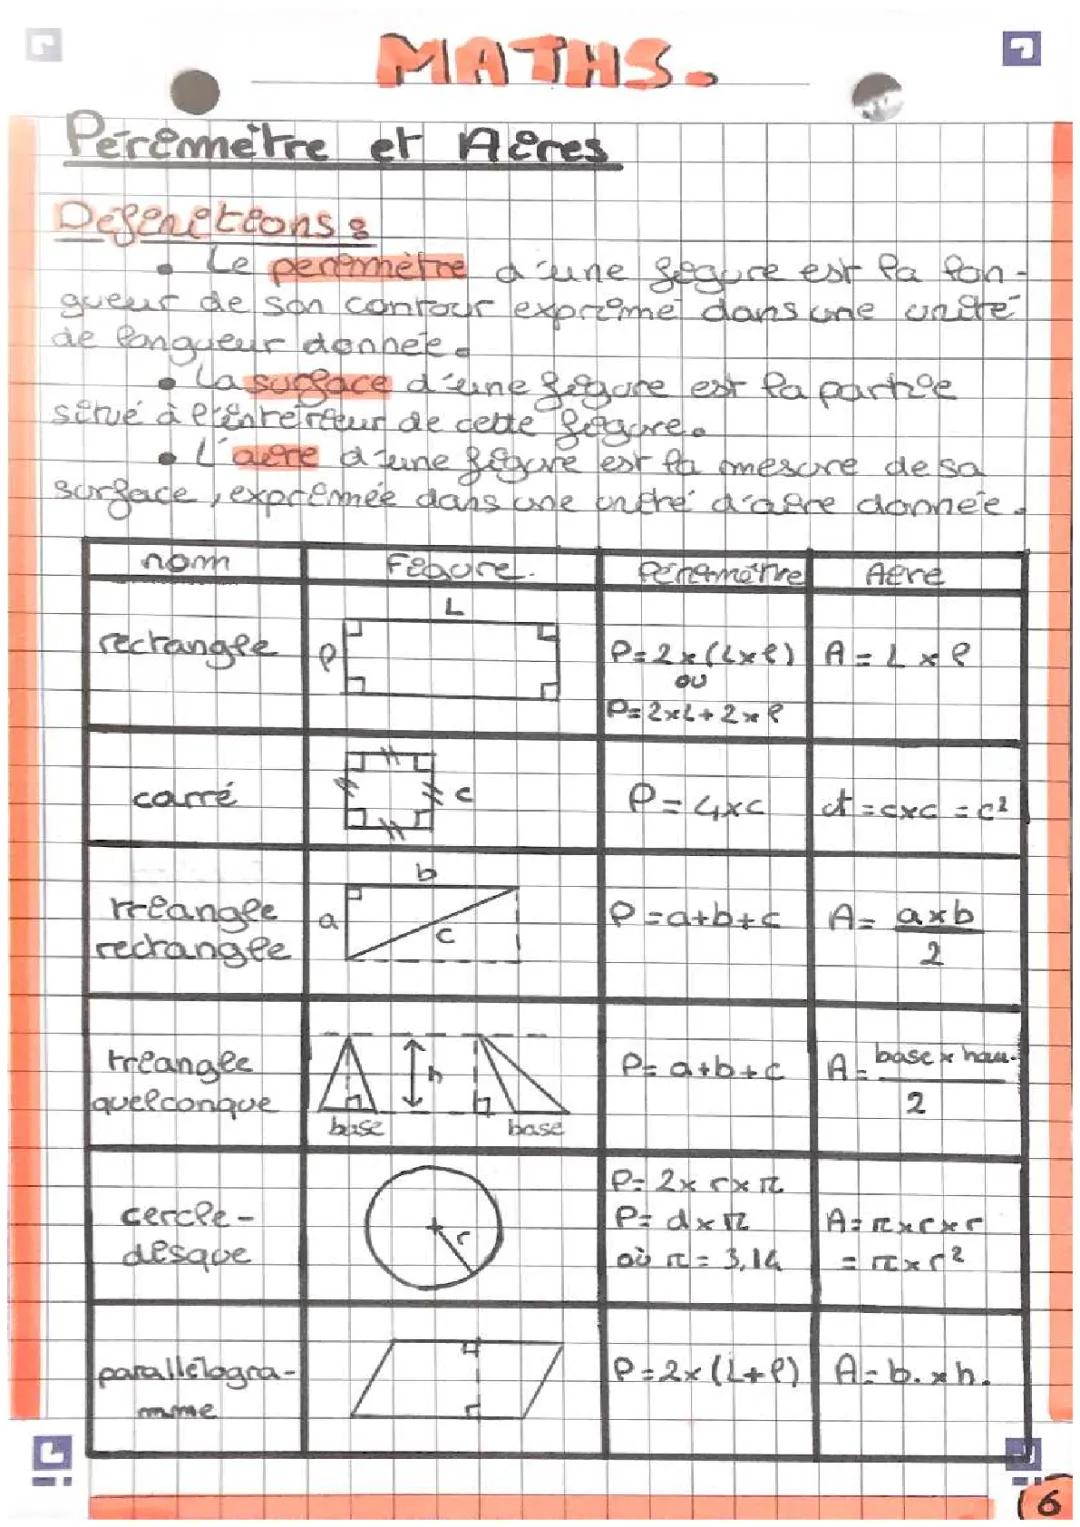 MATHS.
Périmètre et Aires
Définitions :
• Le périmètre d'une figure est la lon-
gueur de son contour exprimé dans une unité
de longueur donnée.
• La surface d'une figure est la partie
situé à l'intérieur de cette figure.
• L'aire d'une figure est la mesure de sa
surface, exprimée dans une unité d'aire donnée.
nom Figure. Périmètre Aire
L
rectangle l P=2x(Lxl) A= L x l
ou
P=2xL+2xl
carré c P=4xc A=cxc=c²
b
triangle rectangle a c P=a+b+c A= axb
2
triangle quelconque h P=a+b+c A= base x hau.
2
base base
P=2x r x π
cercle- P= d x π A=πxrxr
disque r où π=3,14 =πxr²
parallélogra- P=2x(L+l) A=b.xh.
mme
6